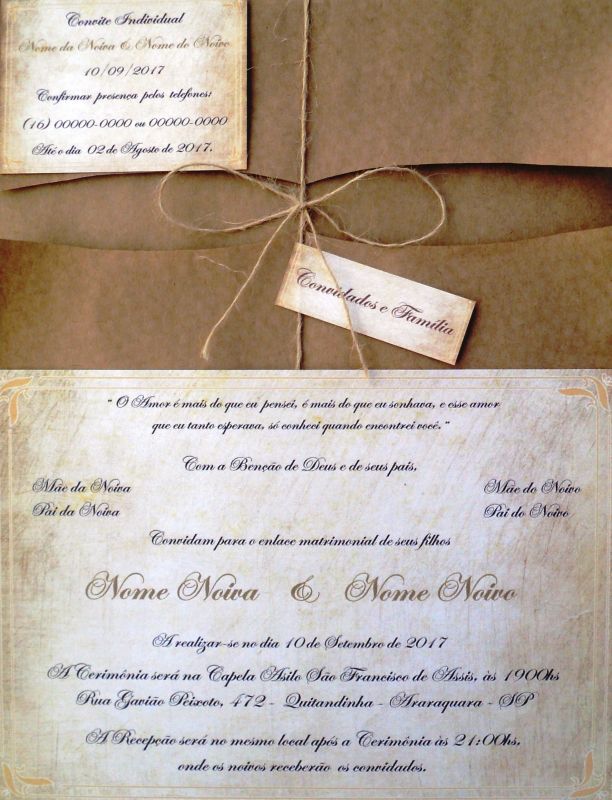 Convite Individual
Nome da Noiva & Nome do Noivo
10/09/2017
Confirmar presença pelos telefones:
(16) 00000-0000 ou 00000-0000
Até o dia 02 de Agosto de 2017.
Convidados e Família
" O Amor é mais do que eu pensei, é mais do que eu sonhava, e esse amor
que eu tanto esperava, só conheci quando encontrei você."
Com a Benção de Deus e de seus pais,
Mãe da Noiva
Pai da Noiva
Mãe do Noivo
Pai do Noivo
Convidam para o enlace matrimonial de seus filhos
Nome Noiva & Nome Noivo
A realizar-se no dia 10 de Setembro de 2017
A Cerimônia será na Capela Asilo São Francisco de Assis, às 1900hs
Rua Gavião Peixoto, 472 - Quitandinha - Araraquara - SP
A Recepção será no mesmo local após a Cerimônia às 21:00hs,
onde os noivos receberão os convidados.